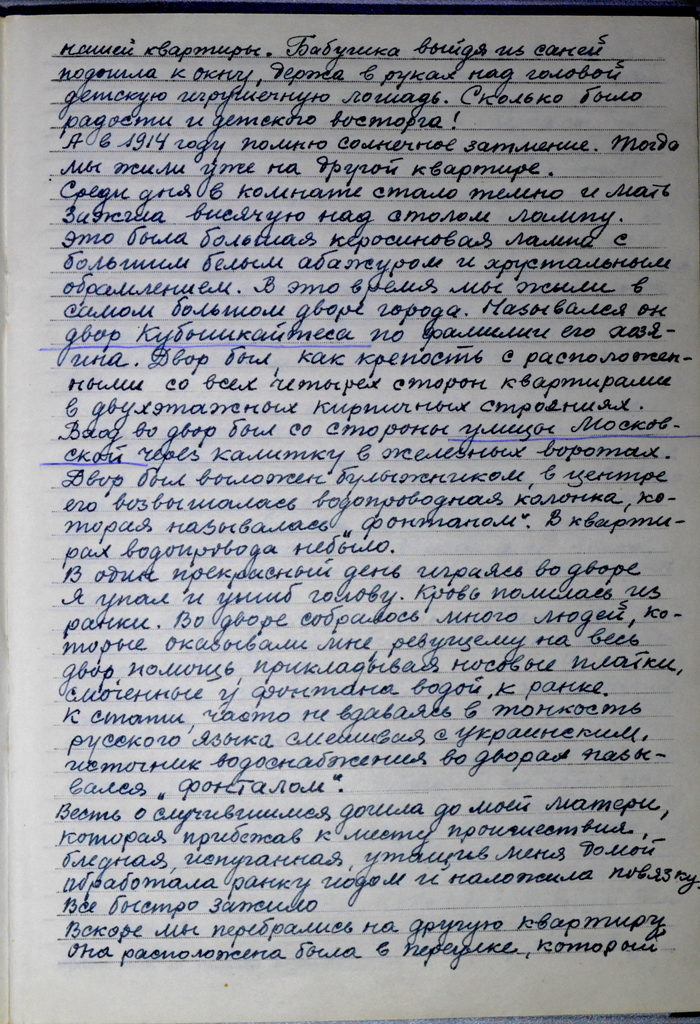 нашей квартиры. Бабушка выйдя из саней
подошла к окну, держа в руках над головой
детскую игрушечную лошадь. Сколько было
радости и детского восторга!
А в 1914 году помню солнечное затмение. Тогда
мы жили уже на другой квартире.
Среди дня в комнате стало темно и мать
зажгла висячую над столом лампу.
Это была большая керосиновая лампа с
большим белым абажуром и хрустальным
обрамлением. В это время мы жыли в
самом большом дворе города. Назывался он
двор Кубышкайтеса по фамилии его хозя-
ина. Двор был, как крепость с расположен-
ными со всех четырех сторон квартирами
в двухэтажных кирпичных строениях.
Вход во двор был со стороны улицы Москов-
ской через калитку в железных воротах.
Двор был выложен булыжником, в центре
его возвышалась водопроводная колонка, ко-
торая называлась „фонтаном". В кварти-
рах водопровода небыло.
В один прекрасный день играясь во дворе
я упал и ушиб голову. Кровь полилась из
ранки. Во дворе собралось много людей, ко-
торые оказывали мне, ревущему на весь
двор, помощь, прикладывая носовые платки,
смоченные у фонтана водой, к ранке.
К стати, часто не вдаваясь в тонкость
русского языка смешивая с украинским,
источник водоснабжения во дворах назы-
вался „фонталом".
Весть о случившимся дошла до моей матери,
которая прибежав к месту происшествия,
бледная, испуганная, утащив меня домой
обработала ранку иодом и наложила повязку.
Все быстро зажило
Вскоре мы перебрались на другую квартиру
Она расположена была в переулке, который